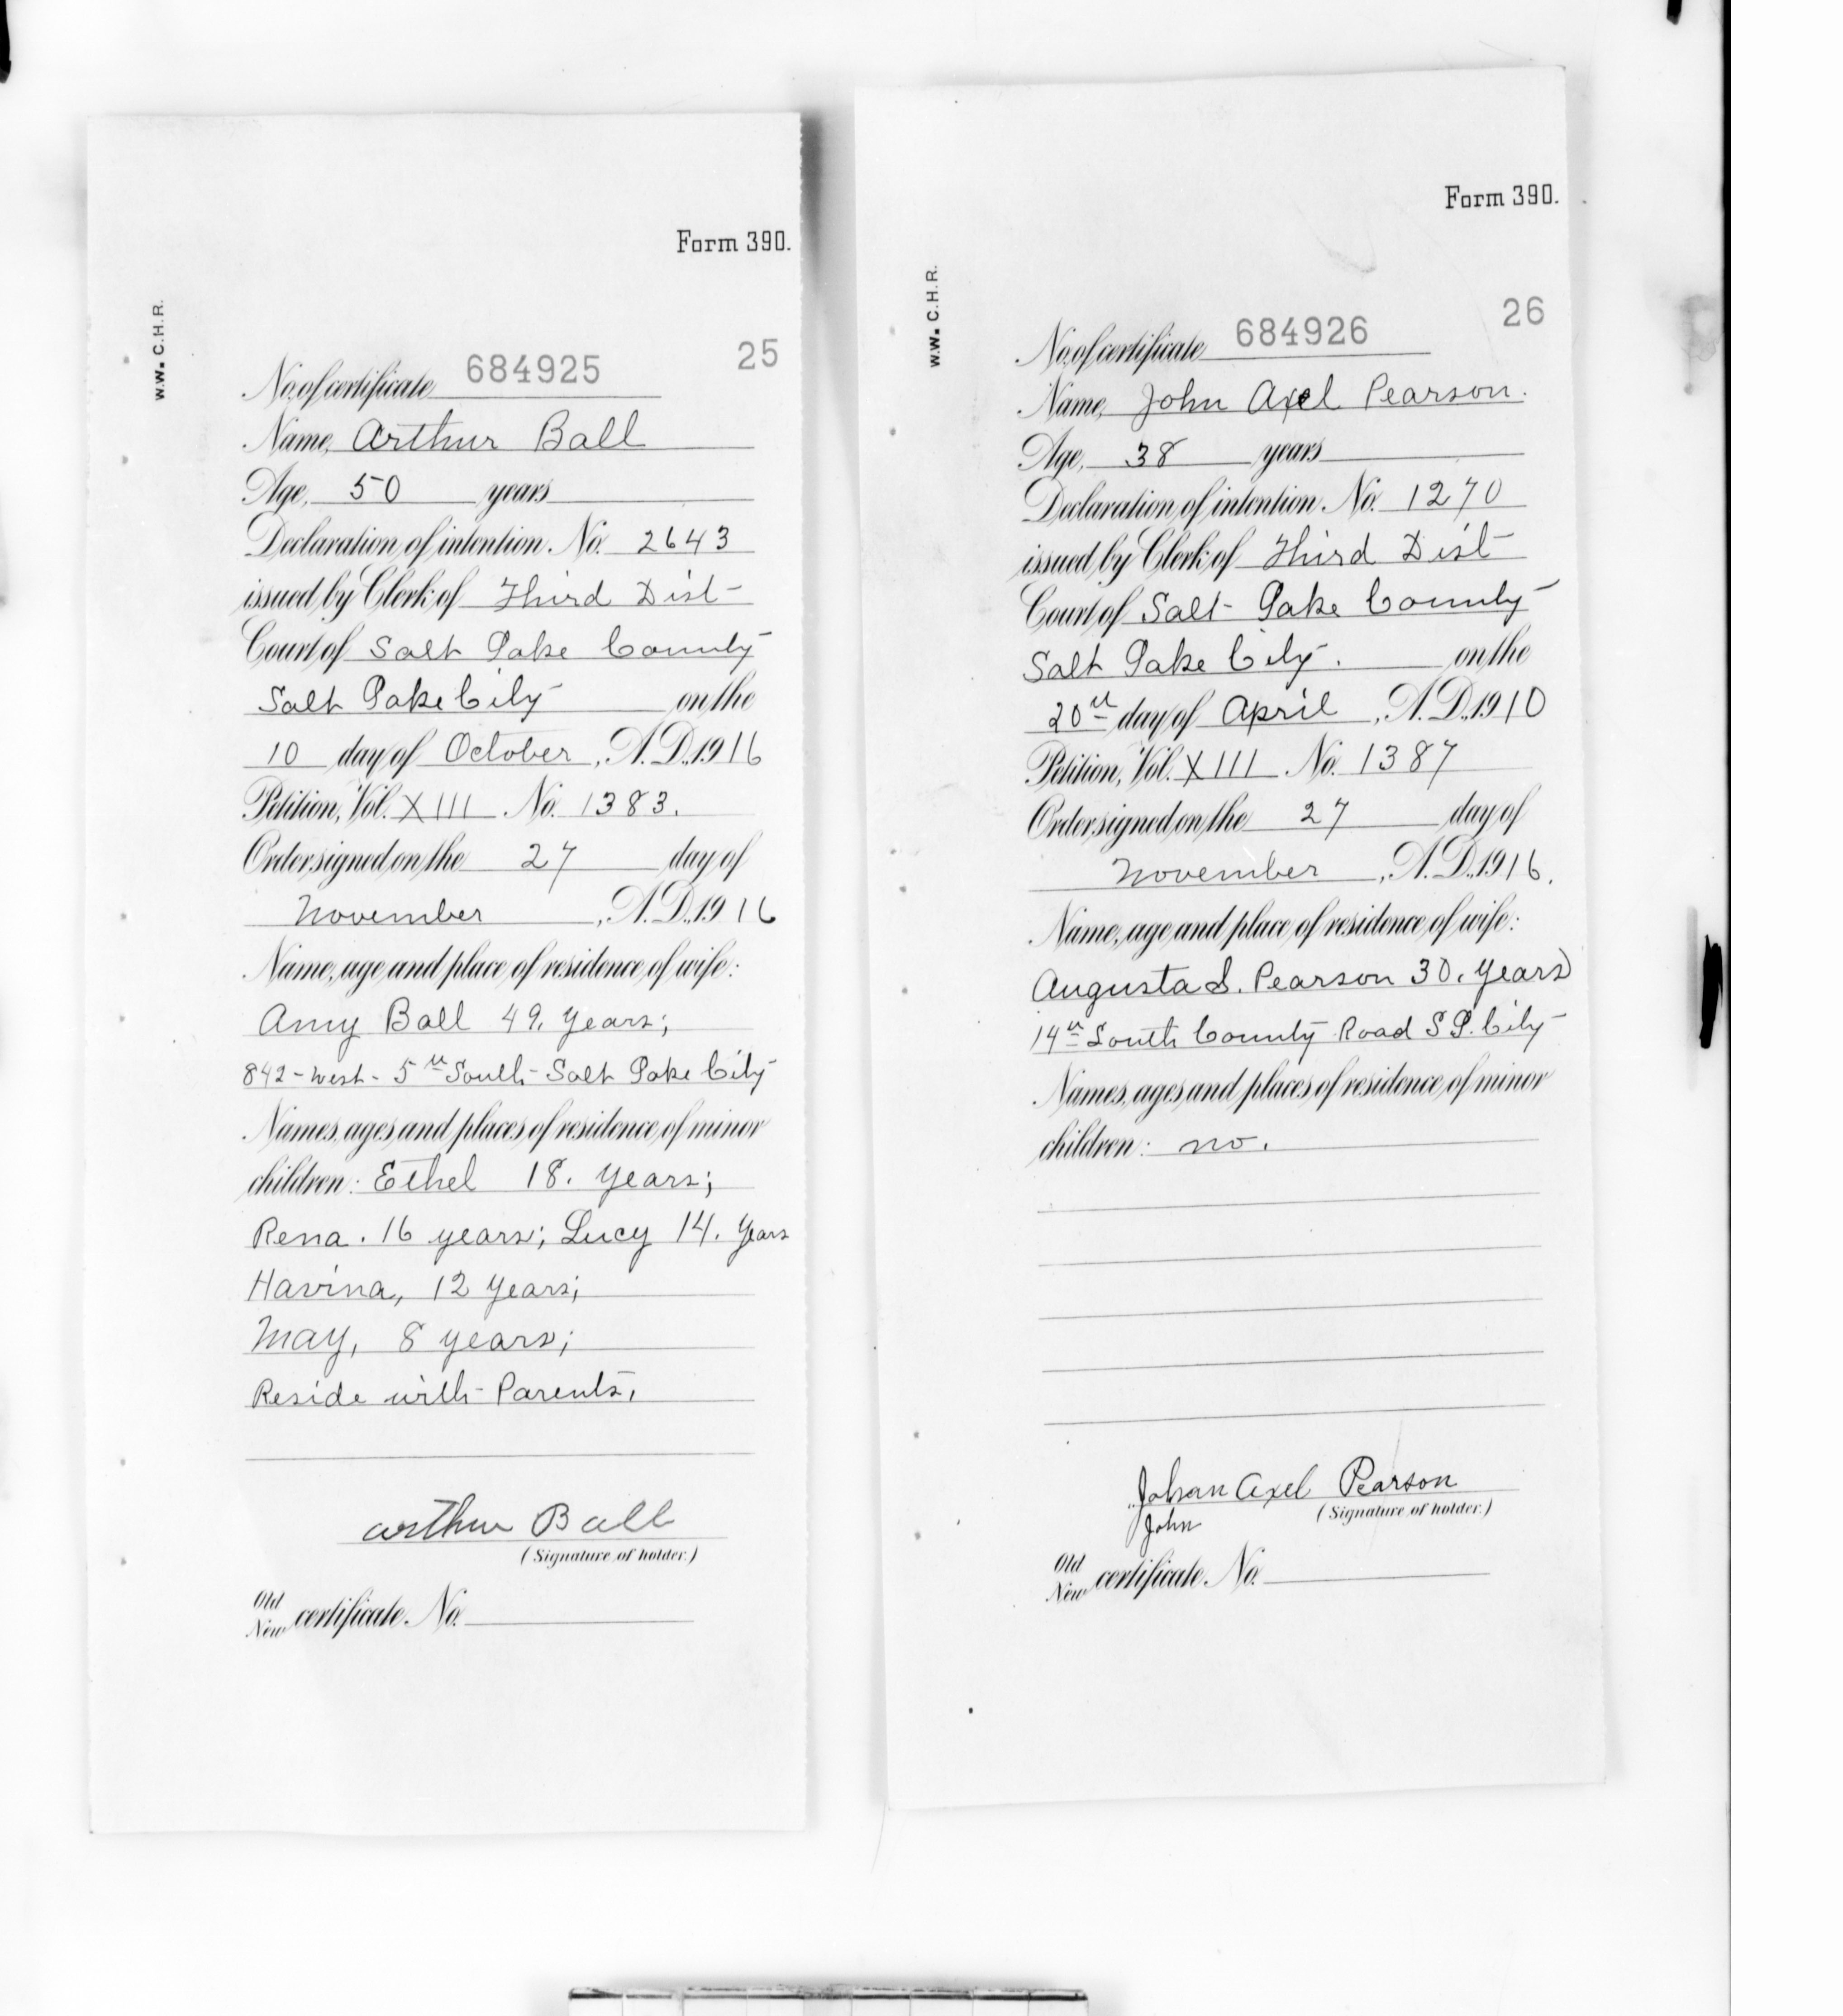 Form 390.
W.W. C.H.R.
25
No. of certificate 684925
Name, Arthur Ball
Age, 50 years
Declaration of intention, No. 2643
issued by Clerk of Third Dist
Court of Salt Lake County
Salt Lake City on the
10 day of October, A.D. 1916
Petition, Vol. XIII No. 1383.
Order signed on the 27 day of
November, A.D. 1916
Name, age and place of residence of wife:
Amy Ball 49, years;
842 - West - 5th South - Salt Lake City
Names, ages and places of residence of minor
children: Ethel 18. years;
Rena. 16 years; Lucy 14. years
Havina, 12 years;
May, 8 years;
Reside with Parents,
Arthur Ball
(Signature of holder.)
Old
New certificate, No.
Form 390.
W.W. C.H.R.
26
No. of certificate 684926
Name, John Axel Pearson.
Age, 38 years
Declaration of intention, No. 1270
issued by Clerk of Third Dist
Court of Salt Lake County
Salt Lake City. on the
20th day of April, A.D. 1910
Petition, Vol. XIII No. 1387
Order signed on the 27 day of
November, A.D. 1916.
Name, age and place of residence of wife:
Augusta S. Pearson 30. years
14th South County Road S L. City
Names, ages and places of residence of minor
children: no.
Johan Axel Pearson
John
(Signature of holder.)
Old
New certificate, No.